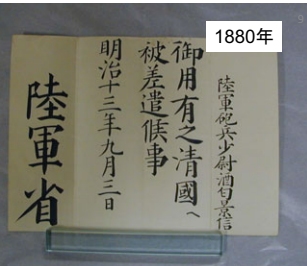 1880年
陸軍砲兵少尉酒匂景信
御用有之清國へ
被差遣候事
明治十三年九月三日
陸軍省